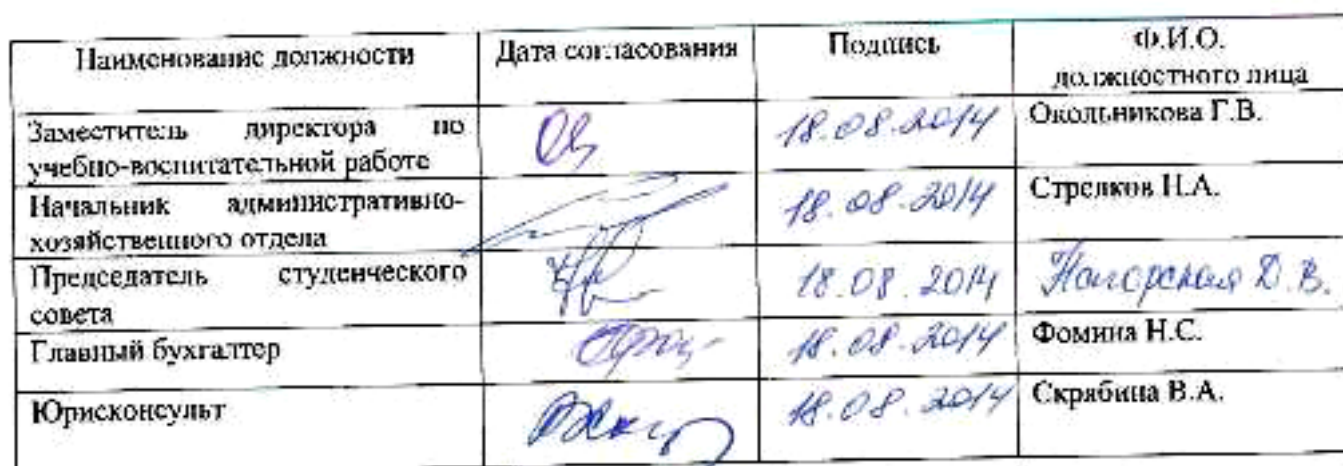 Наименование должности Дата согласования Подпись Ф.И.О.
должностного лица
Заместитель директора по
учебно-воспитательной работе 18.08.2014 Окольникова Г.В.
Начальник административно-
хозяйственного отдела 18.08.2014 Стрелков Н.А.
Председатель студенческого
совета 18.08.2014 Нагорская Д.В.
Главный бухгалтер 18.08.2014 Фомина Н.С.
Юрисконсульт 18.08.2014 Скрябина В.А.